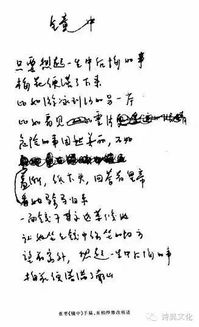 镜中
只要想起一生中后悔的事
梅花便落了下来
比如游泳到河的另一岸
比如
危险的事固然美丽,不如
羞惭,低下头,回答着皇帝
看她骑马归来
一面镜子永远等候她
让她坐到镜中常坐的地方
望着窗外,想起一生中后悔的事
梅花便落满了南山
张枣《镜中》手稿,有柏桦修改痕迹